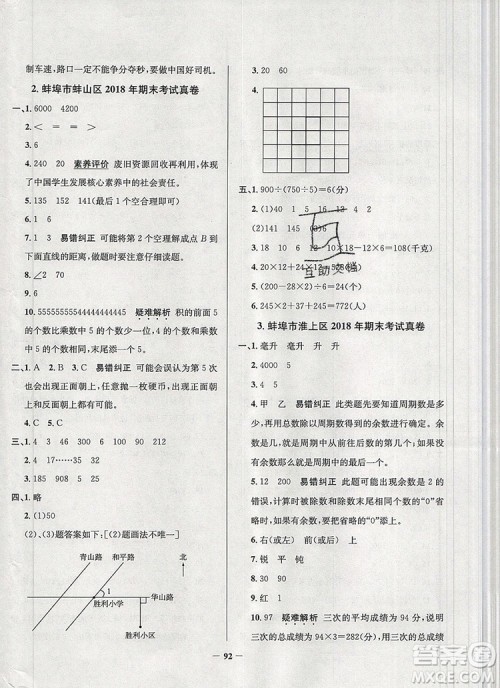 制车速,路口一定不能争分夺秒,要做中国好司机。
2. 蚌埠市蚌山区 2018 年期末考试真卷
一、1. 6000 4200
2. < = = >
3. 6
4. 240 20 素养评价 废旧资源回收再利用,体现了中国学生发展核心素养中的社会责任。
5. 135 152 141(最后 1 个空合理即可)
6. 1
7. 4 3 41 易错纠正 可能将第 2 空理解成点 A 到 B 的直线的距离,做题时要注意仔细读题。
8. ∠2 70
9. 16
10. 疑难解析 积的前面的 5 的个数比乘数中 5 的个数少 1,4 的个数与乘数中 5 的个数相同,末尾添 0。
二、1. A 2. B 3. C 易错纠正 可能会误认为第 5 次出现正面朝上,任意抛一枚硬币,可能会出现正面朝上或反面朝上。
4. C 5. C
三、1. 3 46 300 60 100 90 212
2. 4 9 8 154
3. 185 908 5 22……7 135
四、1. 略
2. (1)50
(2)、(3)题答案如下:[(2)题画法不唯一]
青山路 和平路 北
1
华山路
胜利小学
胜利小区
3. 20 60
4.
五、1. 900÷(750÷5)=6(分)
3. 18×12=216
4. 20×12+24×12=528
5. (280-20)÷20=13
6. 245÷(9-2)×9=315
3. 蚌埠市淮上区 2018 年期末考试真卷
一、1. 毫升 毫升 升 升
2. 4000 9
3. 甲 乙 易错纠正 此类题先要知道周期的规律,再用总数除以周期得到的余数进行确定。如果没有余数,那么就是每个周期中的最后一个;如果有余数那么就是每个周期中的余数个。
5. 400 3 2 易错纠正 可能会出现余数是 2 的错误,计算时被除数和除数末尾同时省略的“0”影响了余数,要把省略的“0”添上。
6. 右(或左) 前(或后)
7. 锐 平 钝
8. 230 23
9. 红 1
10. 97 疑难解析 三次的平均成绩为 94 分,说明三次的总成绩为 94×3=282(分),用三次的总成绩
互助文档
92
答案圈
MXQE.COM